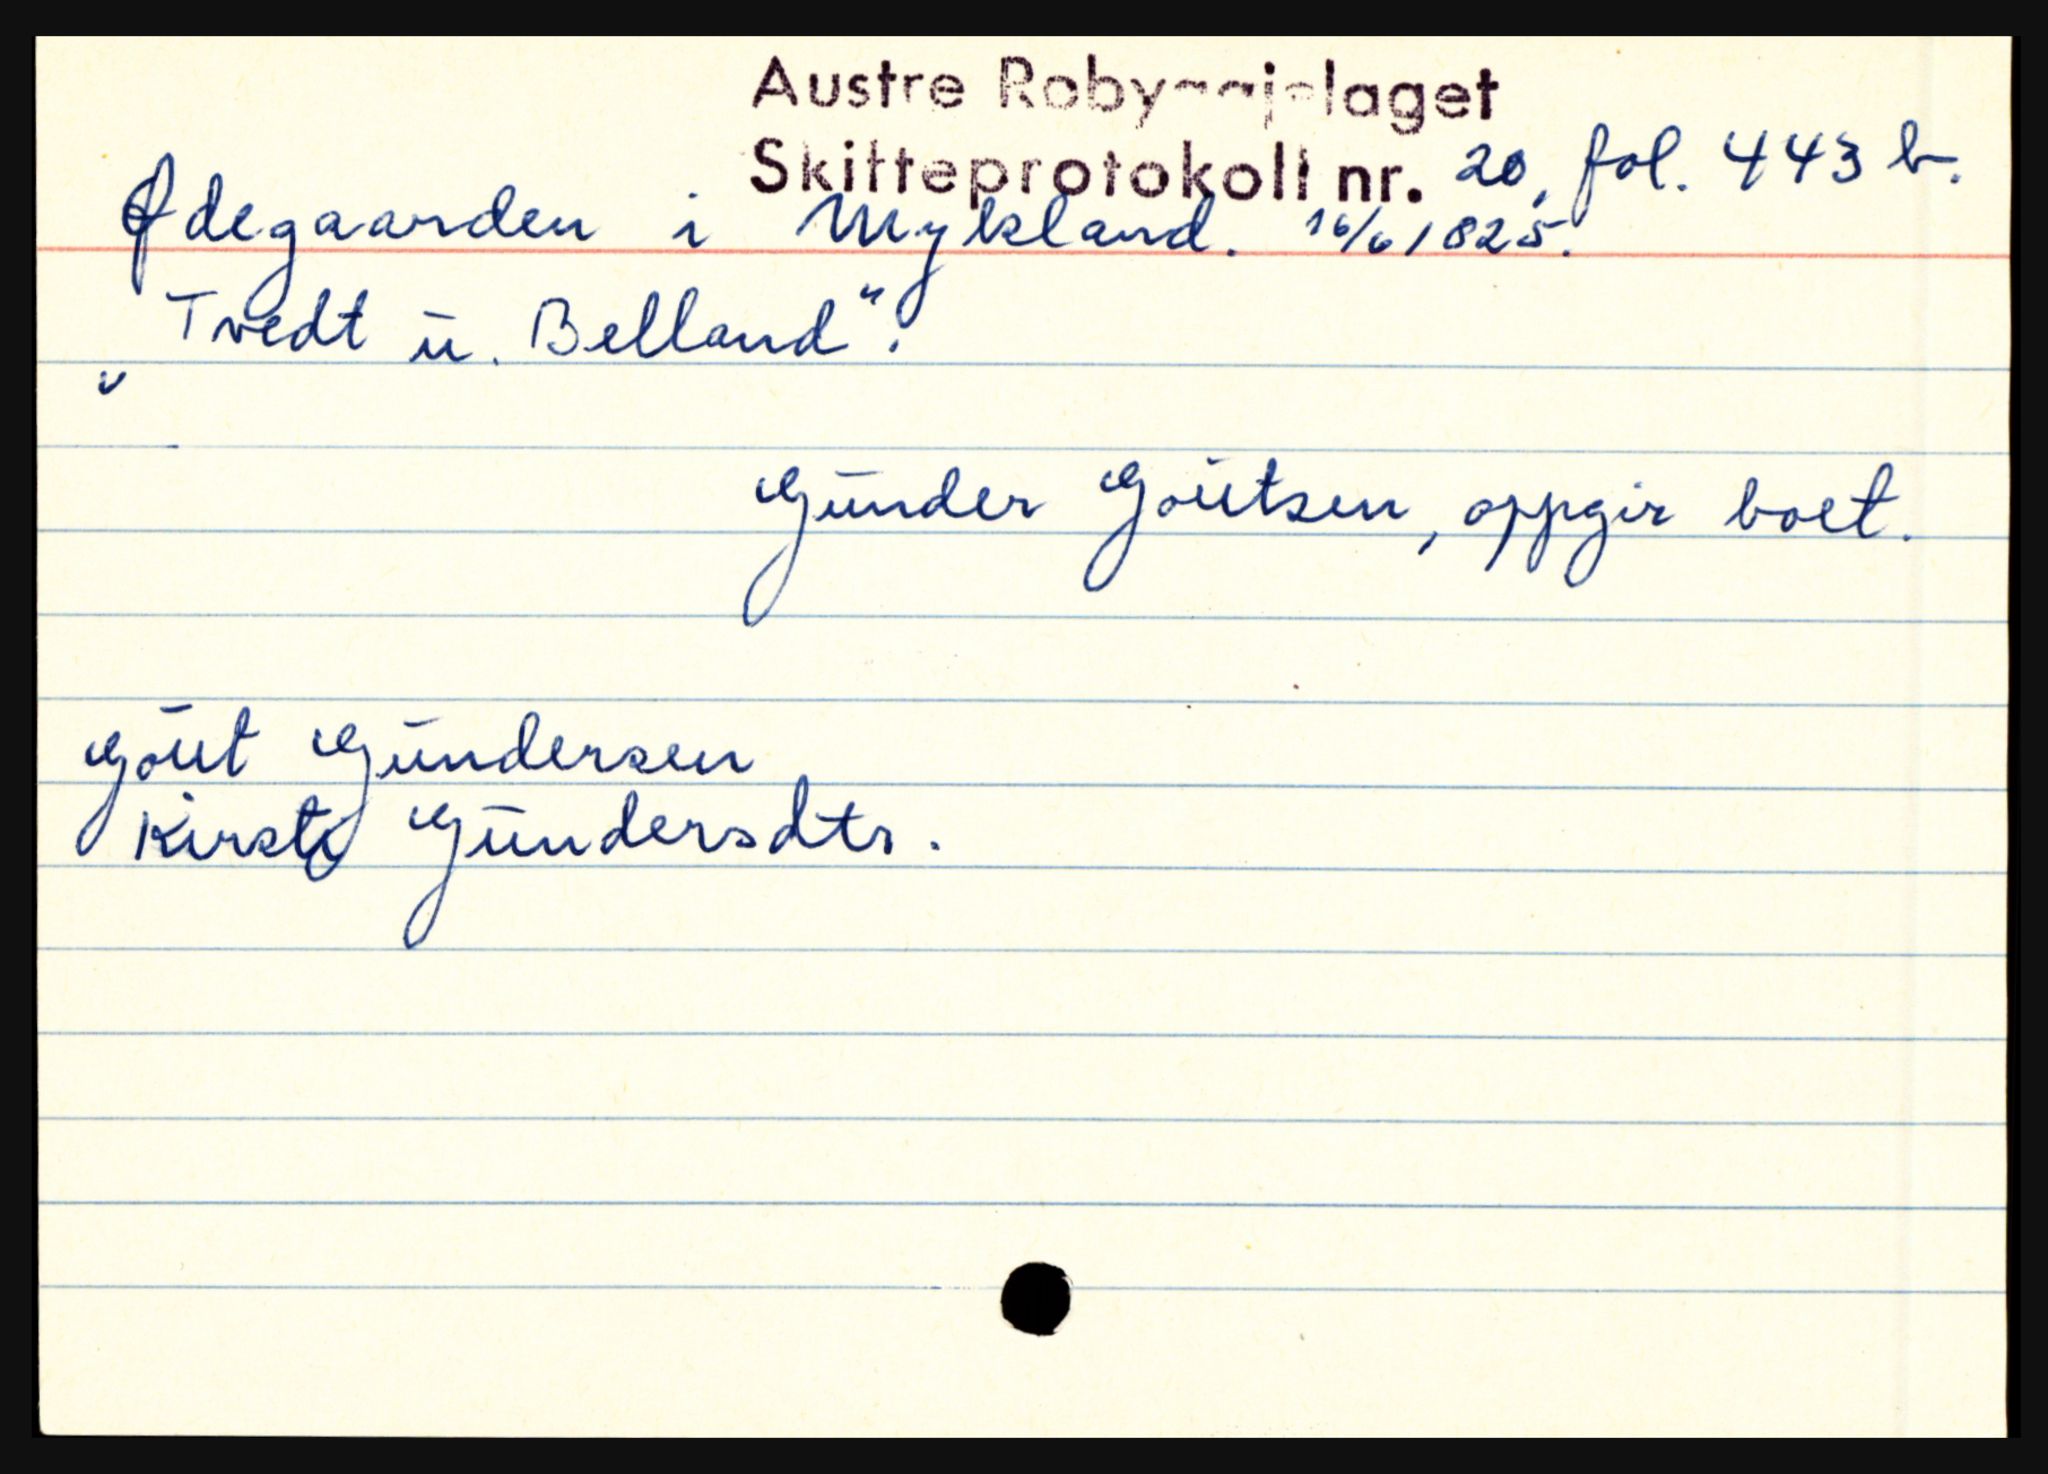 Austre Robyggjelaget
Skifteprotokoll nr. 20, fol. 443 b.
Ødegaarden i Mykland. 16/6 1825.
"Tvedt u. Belland".
Gunder Goutsen, oppgir boet.
Gout Gundersen
Kirsti Gundersdtr.